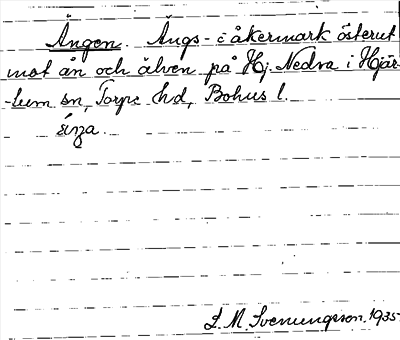 Ängen. Ängs- o åkermark österut
mot ån och älven på Hj. Nedra i Hjär-
-tum sn, Torpe hd, Bohus l.
éṇa.
L. M. Svenungsson. 1935